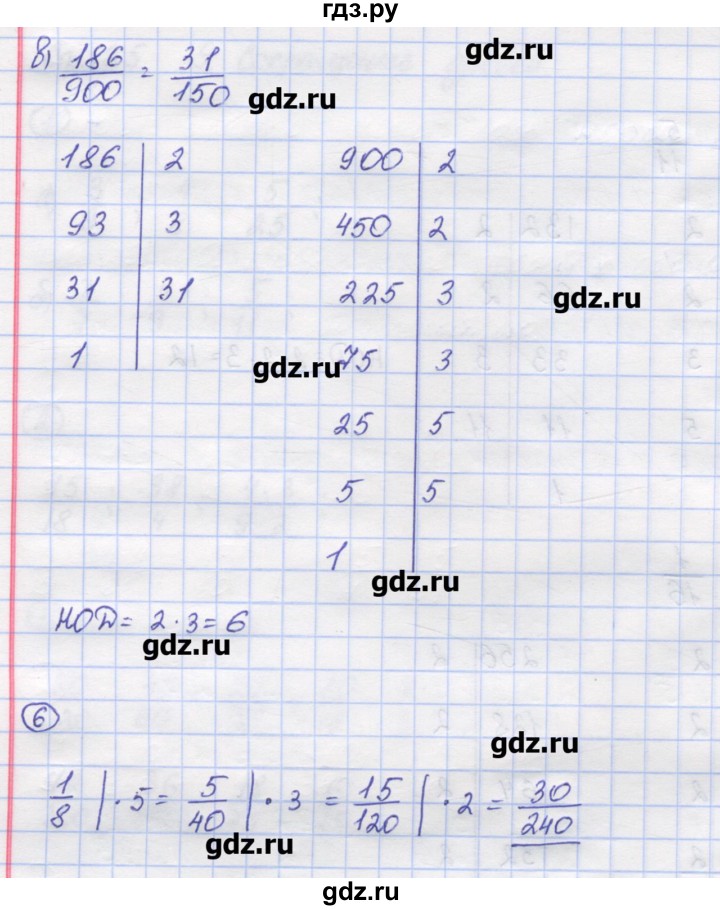 гдз.ру
в) 186/900 = 31/150
gdz.ru
gdz.ru
186 | 2 900 | 2
93 | 3 450 | 2
31 | 31 225 | 3
gdz.ru
1 | 75 | 3
gdz.ru
25 | 5
5 | 5
1
gdz.ru
НОД = 2 · 3 = 6
gdz.ru
6
gdz.ru
1/8 | · 5 = 5/40 | · 3 = 15/120 | · 2 = 30/240
gdz.ru
gdz.ru